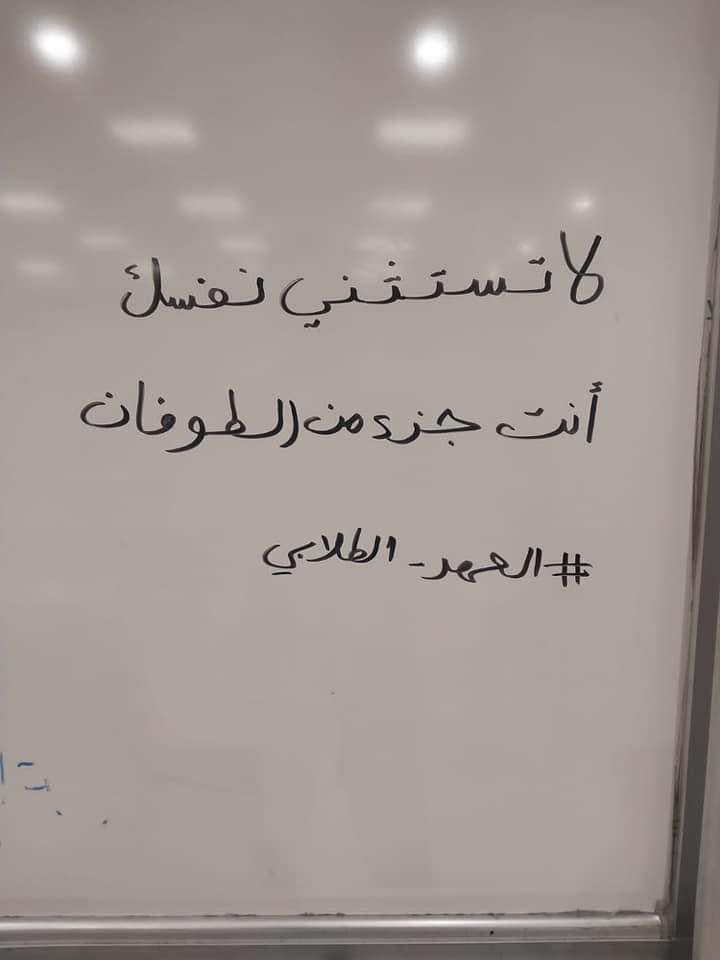 لا تستثني نفسك
أنت جزء من الطوفان
#العهد_الطلابي